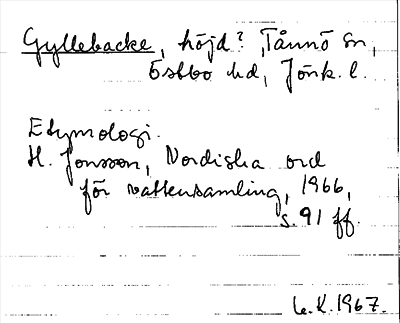 Gyllebacke, höjd? Tånnö sn,
Östbo hd, Jönk. l.
Etymologi.
H. Jonsson, Nordiska ord
för vattensamling, 1966,
s. 91 ff.
L.K. 1967.